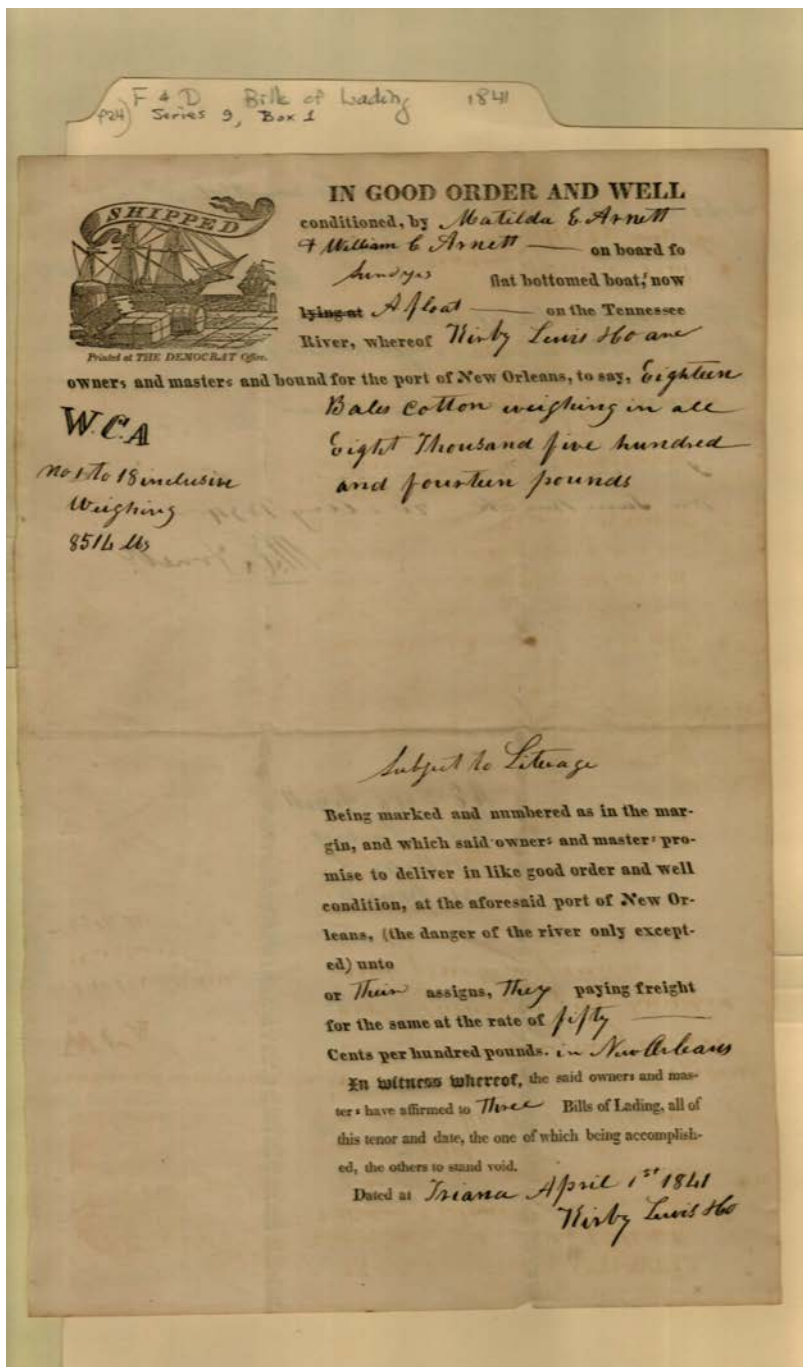 F & D Bills of Lading 1841
(P24) Series 9, Box 1
SHIPPED
Printed at THE DEMOCRAT Office.
IN GOOD ORDER AND WELL
conditioned, by Matilda E Arnett
& William C Arnett — on board fo
Sundyes flat bottomed boat, now
lying at Afloat — on the Tennessee
River, whereof Kirby Lewis & Co are
owners and masters and bound for the port of New Orleans, to say, Eighteen
Bales Cotton weighing in all
Eight Thousand five hundred
and fourteen pounds
W.C.A
No 1 to 18 inclusive
Weighing
8514 lbs
Subject to Liteage
Being marked and numbered as in the mar-
gin, and which said owners and masters pro-
mise to deliver in like good order and well
condition, at the aforesaid port of New Or-
leans, (the danger of the river only except-
ed) unto
or Their assigns, They paying freight
for the same at the rate of fifty —
Cents per hundred pounds. in New Orleans
In witness whereof, the said owners and mas-
ters have affirmed to Three Bills of Lading, all of
this tenor and date, the one of which being accomplish-
ed, the others to stand void.
Dated at Triana April 1st 1841
Kirby Lewis & Co